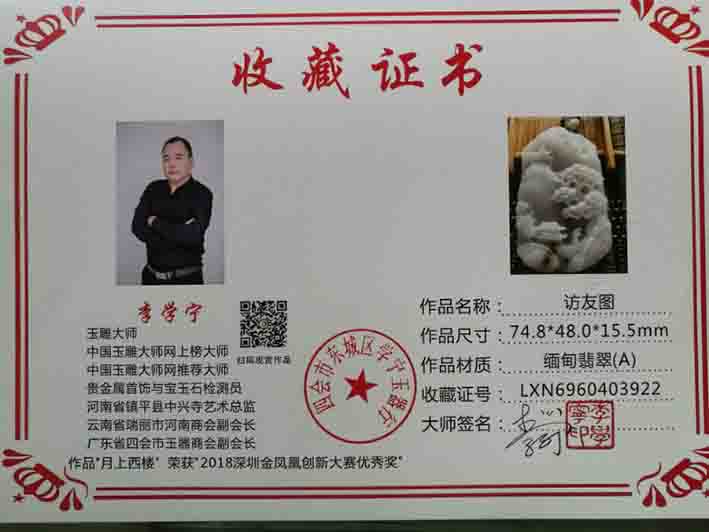 收藏证书
李学宁
玉雕大师
中国玉雕大师网上榜大师
中国玉雕大师网推荐大师
贵金属首饰与宝玉石检测员
河南省镇平县中兴寺艺术总监
云南省瑞丽市河南商会副会长
广东省四会市玉器商会副会长
作品"月上西楼" 荣获"2018深圳金凤凰创新大赛优秀奖"
扫码观赏作品
四会市东城区学宁玉器行
作品名称： 访友图
作品尺寸：74.8*48.0*15.5mm
作品材质： 缅甸翡翠(A)
收藏证号：LXN6960403922
大师签名：
李學寧印